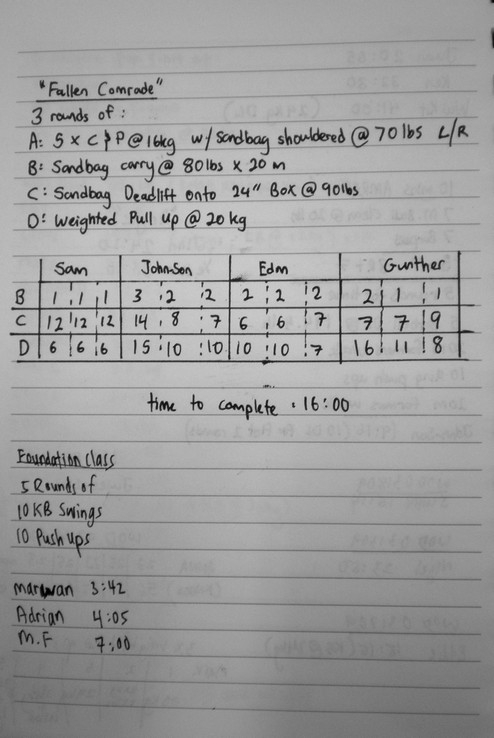 "Fallen Comrade"
3 rounds of :
A: 5 x C & P @ 16kg w/ Sandbag shouldered @ 70 lbs L/R
B: Sandbag carry @ 80 lbs x 20 m
C: Sandbag Deadlift onto 24" Box @ 90lbs
D: Weighted Pull up @ 20 kg
Sam John-Son Edm Gunther
B 1 1 1 3 2 2 2 2 2 2 1 1
C 12 12 12 14 8 7 6 6 7 7 7 9
D 6 6 6 15 10 10 10 10 7 16 11 8
time to complete : 16:00
Foundation class
5 Rounds of
10 KB Swings
10 Push ups
marwan 3:42
Adrian 4:05
M.F 7:00